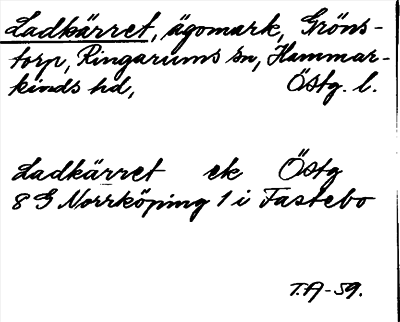 Ladkärret, ägomark, Gröns-
torp, Ringarums sn, Hammar-
kinds hd, Östg. l.
Ladkärret ek Östg
8 G Norrköping 1 i Fastebo
T.A-59.